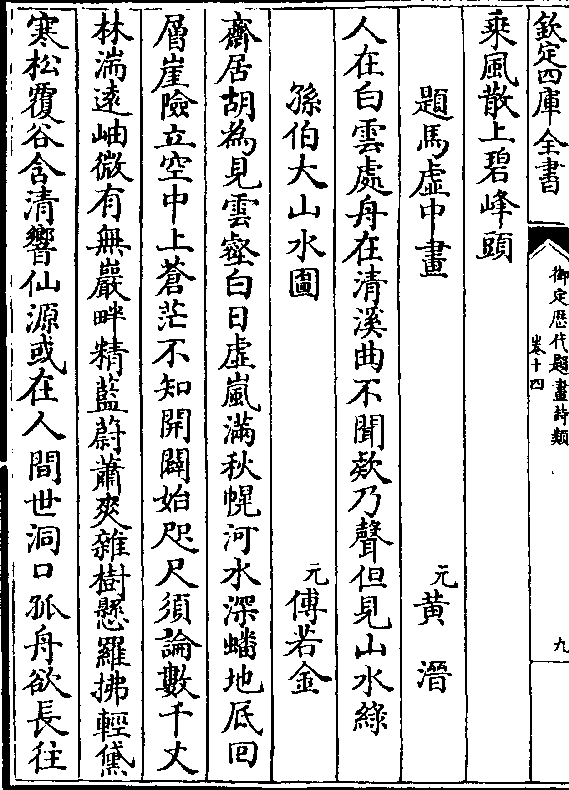 欽定四庫全書
御定歴代題畫詩類
卷十四
九
乘風散上碧峰頭
題馬虛中畫
元黃溍
人在白雲處舟在清溪曲不聞欸乃聲但見山水綠
孫伯大山水圖
元傅若金
齋居胡為見雲壑白日虛嵐滿秋幌河水深蟠地底回
層崖險立空中上蒼茫不知開闢始咫尺須論數千丈
林湍遠岫微有無巖畔精藍蔚蕭爽雜樹懸羅拂輕黛
寒松覆谷含清響仙源或在人間世洞口孤舟欲長往